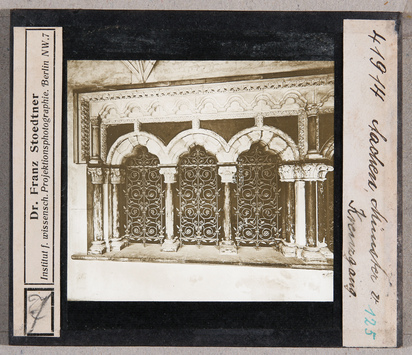 Dr. Franz Stoedtner
Institut f. wissensch. Projektionsphotographie, Berlin NW. 7
41914 Aachen, Münster
Kreuzgang
125